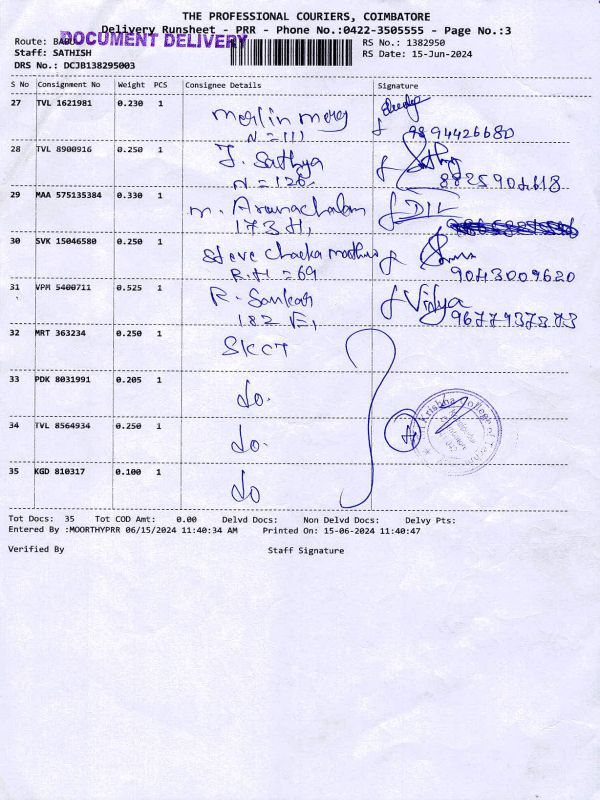 THE PROFESSIONAL COURIERS, COIMBATORE
Delivery Runsheet - PRR - Phone No.:0422-3505555 - Page No.:3
DOCUMENT DELIVERY
Route: BABU RS No.: 1382950
Staff: SATHISH RS Date: 15-Jun-2024
DRS No.: DCJB138295003
S No Consignment No Weight PCS Consignee Details Signature
27 TVL 1621981 0.230 1 Merlin mercy
N = 111 9894426680
28 TVL 8900916 0.250 1 J. Sathya Sathya
N = 126 8825904618
29 MAA 575135384 0.330 1 M. Arunachalam
173 H,
30 SVK 15046580 0.250 1 Steve
R.H = 69 9043009620
31 VPM 5400711 0.525 1 R. Sankar Vidya
182 E, 9677937873
32 MRT 363234 0.250 1 SKCT
33 PDK 8031991 0.205 1 do.
34 TVL 8564934 0.250 1 do.
35 KGD 810317 0.100 1 do
Krishna College of
Tot Docs: 35 Tot COD Amt: 0.00 Delvd Docs: Non Delvd Docs: Delvy Pts:
Entered By :MOORTHYPRR 06/15/2024 11:40:34 AM Printed On: 15-06-2024 11:40:47
Verified By Staff Signature